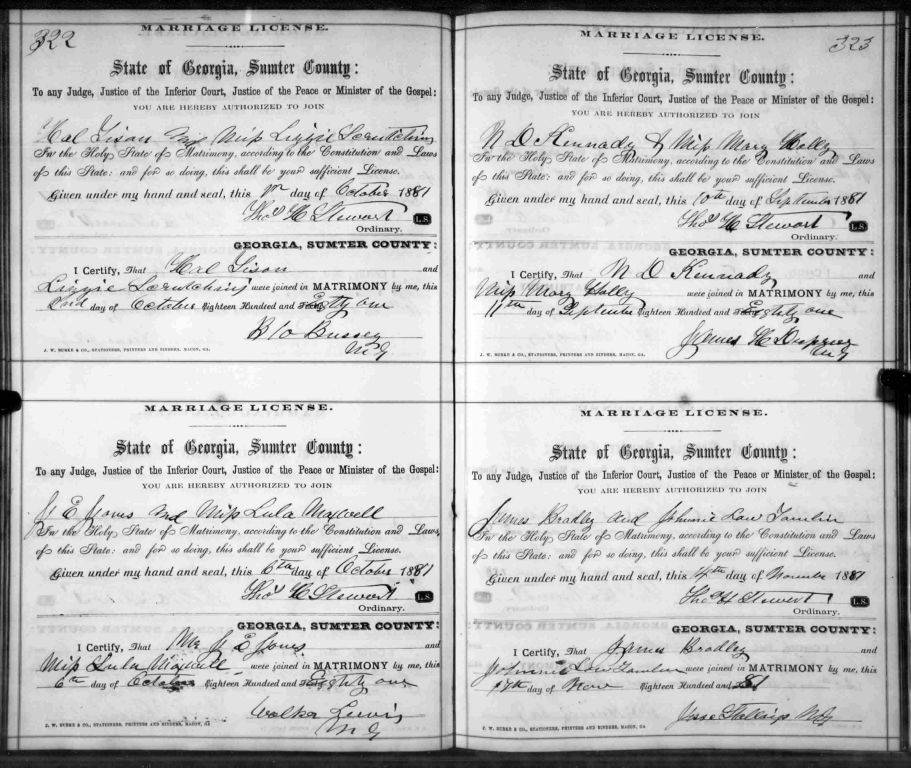 322
MARRIAGE LICENSE.
State of Georgia, Sumter County:
To any Judge, Justice of the Inferior Court, Justice of the Peace or Minister of the Gospel:
YOU ARE HEREBY AUTHORIZED TO JOIN
Hal Sison and Miss Lizzie
In the Holy State of Matrimony, according to the Constitution and Laws
of this State: and for so doing, this shall be your sufficient License.
Given under my hand and seal, this day of October 1881
Thos H Stewart L.S.
Ordinary.
GEORGIA, SUMTER COUNTY:
I Certify, That Hal Sison and
Lizzie were joined in MATRIMONY by me, this
day of October Eighteen Hundred and Eighty one
Bussey
M G
J. W. BURKE & CO., STATIONERS, PRINTERS AND BINDERS, MACON, GA.
MARRIAGE LICENSE.
State of Georgia, Sumter County:
To any Judge, Justice of the Inferior Court, Justice of the Peace or Minister of the Gospel:
YOU ARE HEREBY AUTHORIZED TO JOIN
J E Jones and Miss Lula Maxwell
In the Holy State of Matrimony, according to the Constitution and Laws,
of this State: and for so doing, this shall be your sufficient License.
Given under my hand and seal, this 6th day of October 1881
Thos H Stewart L.S.
Ordinary.
GEORGIA, SUMTER COUNTY:
I Certify, That Mr J E Jones and
Miss Lula Maxwell were joined in MATRIMONY by me, this
6th day of October Eighteen Hundred and Eighty one
Walker Lewis
M G
J. W. BURKE & CO., STATIONERS, PRINTERS AND BINDERS, MACON, GA
323
MARRIAGE LICENSE.
State of Georgia, Sumter County:
To any Judge, Justice of the Inferior Court, Justice of the Peace or Minister of the Gospel:
YOU ARE HEREBY AUTHORIZED TO JOIN
N D Kennady & Miss Mary Holly
In the Holy State of Matrimony, according to the Constitution and Laws
of this State: and for so doing, this shall be your sufficient License.
Given under my hand and seal, this 10th day of September 1881
Thos H Stewart L.S.
Ordinary.
GEORGIA, SUMTER COUNTY:
I Certify, That N D Kennady and
Miss Mary Holly were joined in MATRIMONY by me, this
11th day of September Eighteen Hundred and Eighty one
James H
M G
J. W. BURKE & CO., STATIONERS, PRINTERS AND BINDERS, MACON, GA.
MARRIAGE LICENSE.
State of Georgia, Sumter County:
To any Judge, Justice of the Inferior Court, Justice of the Peace or Minister of the Gospel:
YOU ARE HEREBY AUTHORIZED TO JOIN
James Bradley and Johnnie Law Tamlin
In the Holy State of Matrimony, according to the Constitution and Laws
of this State: and for so doing, this shall be your sufficient License.
Given under my hand and seal, this day of November 1881
Thos H Stewart L.S.
Ordinary.
GEORGIA, SUMTER COUNTY:
I Certify, That James Bradley and
Johnnie Law Tamlin were joined in MATRIMONY by me, this
17th day of Nov Eighteen Hundred and 81
Jesse Stallings M G
J. W. BURKE & CO., STATIONERS, PRINTERS AND BINDERS, MACON, GA